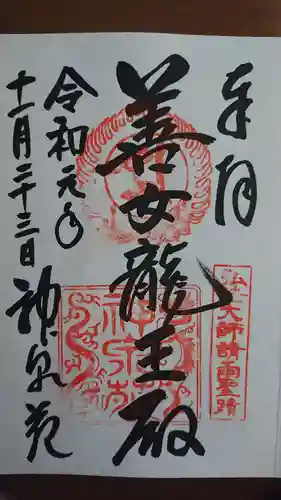 奉拝
善女龍王殿
令和元年
十一月二十三日
神泉苑
大師請雨聖蹟
神泉苑